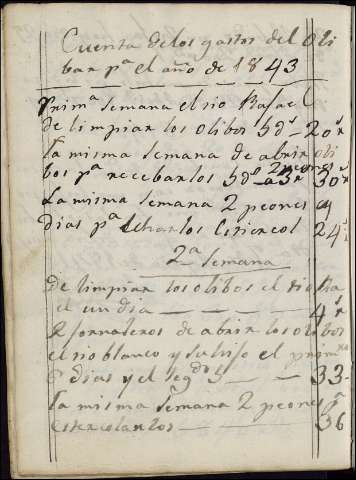 Cuenta de los gastos del Oli
bar pª el año de 1843
Primª Semana el tio Rafael
de limpiar los olibos 5 dˢ - 20 rˢ
la misma semana de abrir oli
bos pª recebarlos 5 dˢ 2 peones a 3 rˢ 30 rˢ
La misma semana 2 peones 4
dias pª echarlos estiercol 24 rˢ
2ª Semana
De limpiar los olibos el tio Ra
el un dia — — — 4 rˢ
2 jornaleros de abrir los olibos
el tio blanco y su hijo el prim
6 dias y el segᵈᵒ 5 — — 33 -
la misma semana 2 peones pª
estercolarlos — — 36